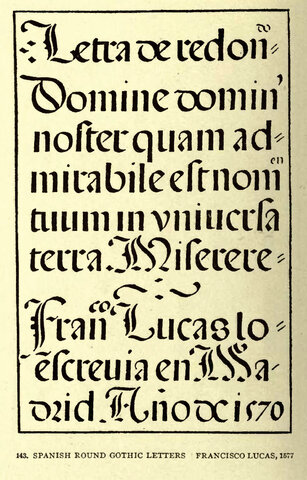 Letra de redonᵈᵒ-
Domine domin'
noster quam ad-
mirabile est nomᵉⁿ
tuum in vniuersa
terra. Miserere-
Franᶜᵒ Lucas lo-
escreuia en Ma-
drid Año de 1570
143. SPANISH ROUND GOTHIC LETTERS FRANCISCO LUCAS, 1577